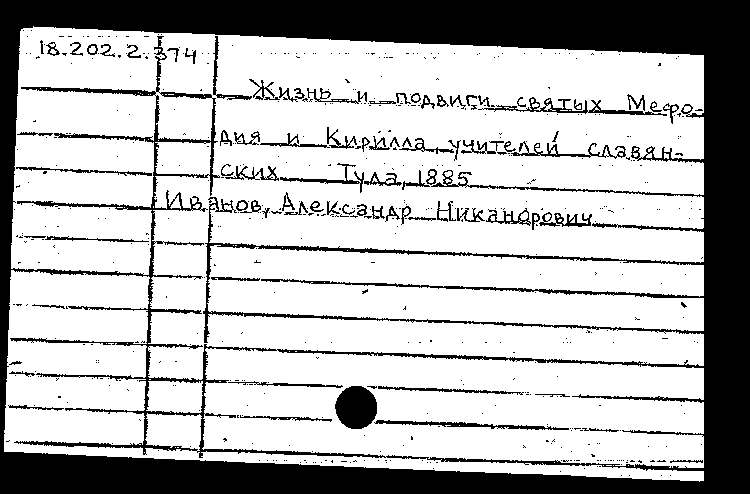 18.202.2.374
Жизнь и подвиги святых Мефо-
дия и Кирилла, учителей славян-
ских Тула, 1885
Иванов, Александр Никанорович